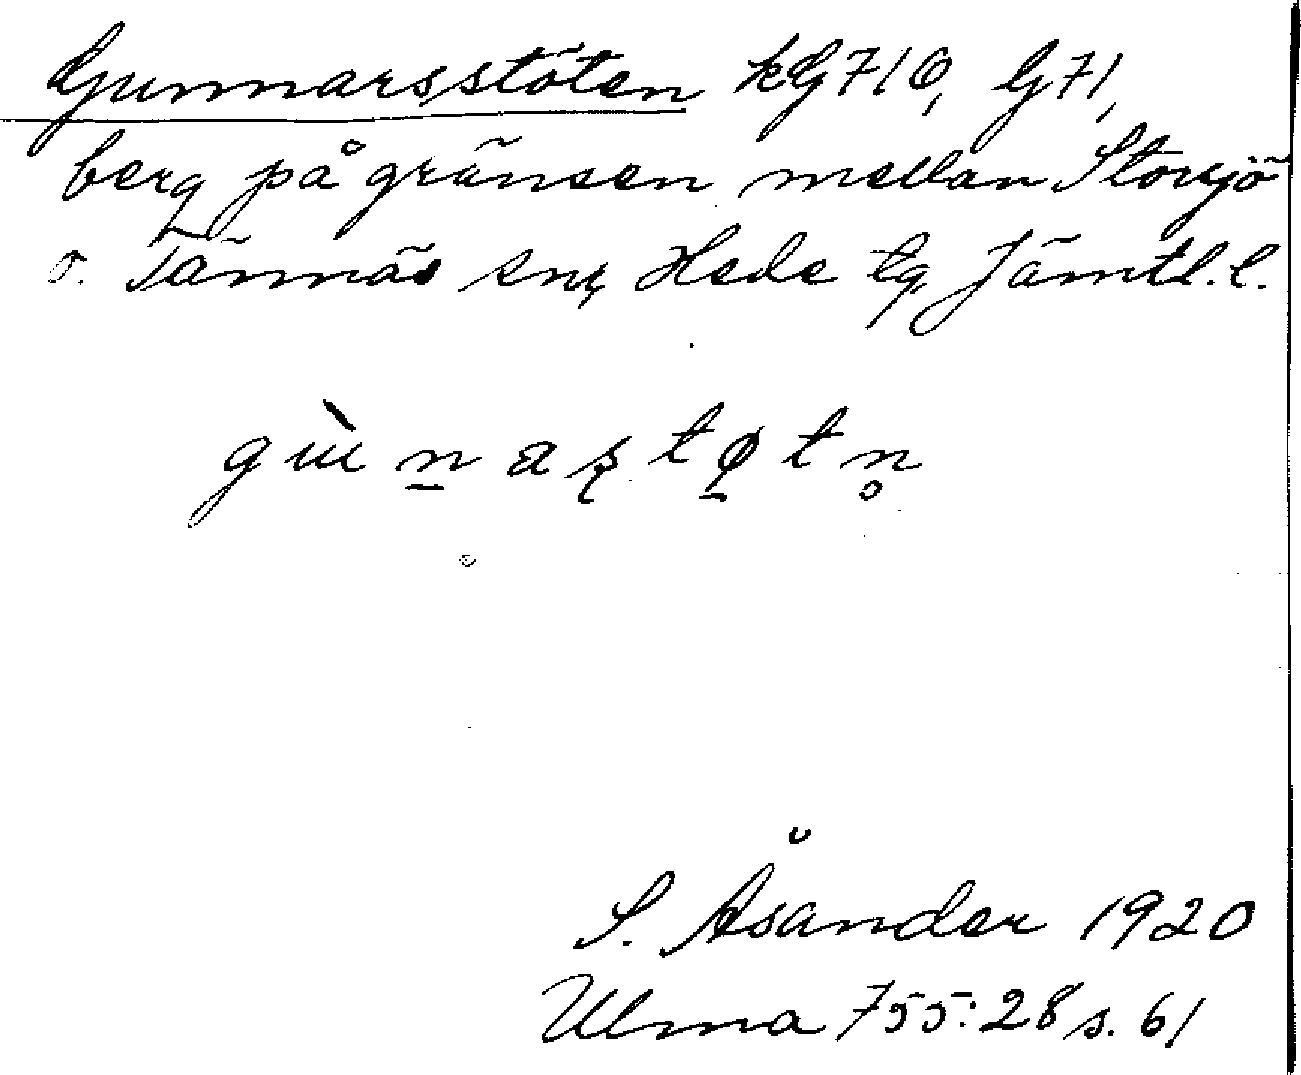 Gunnarsstöten kG710, G71,
berg på gränsen mellan Storsjö
o. Tännäs snr, Hede tg, Jämtl. l.
S. Åsander 1920
Ulma 755:28 s. 61